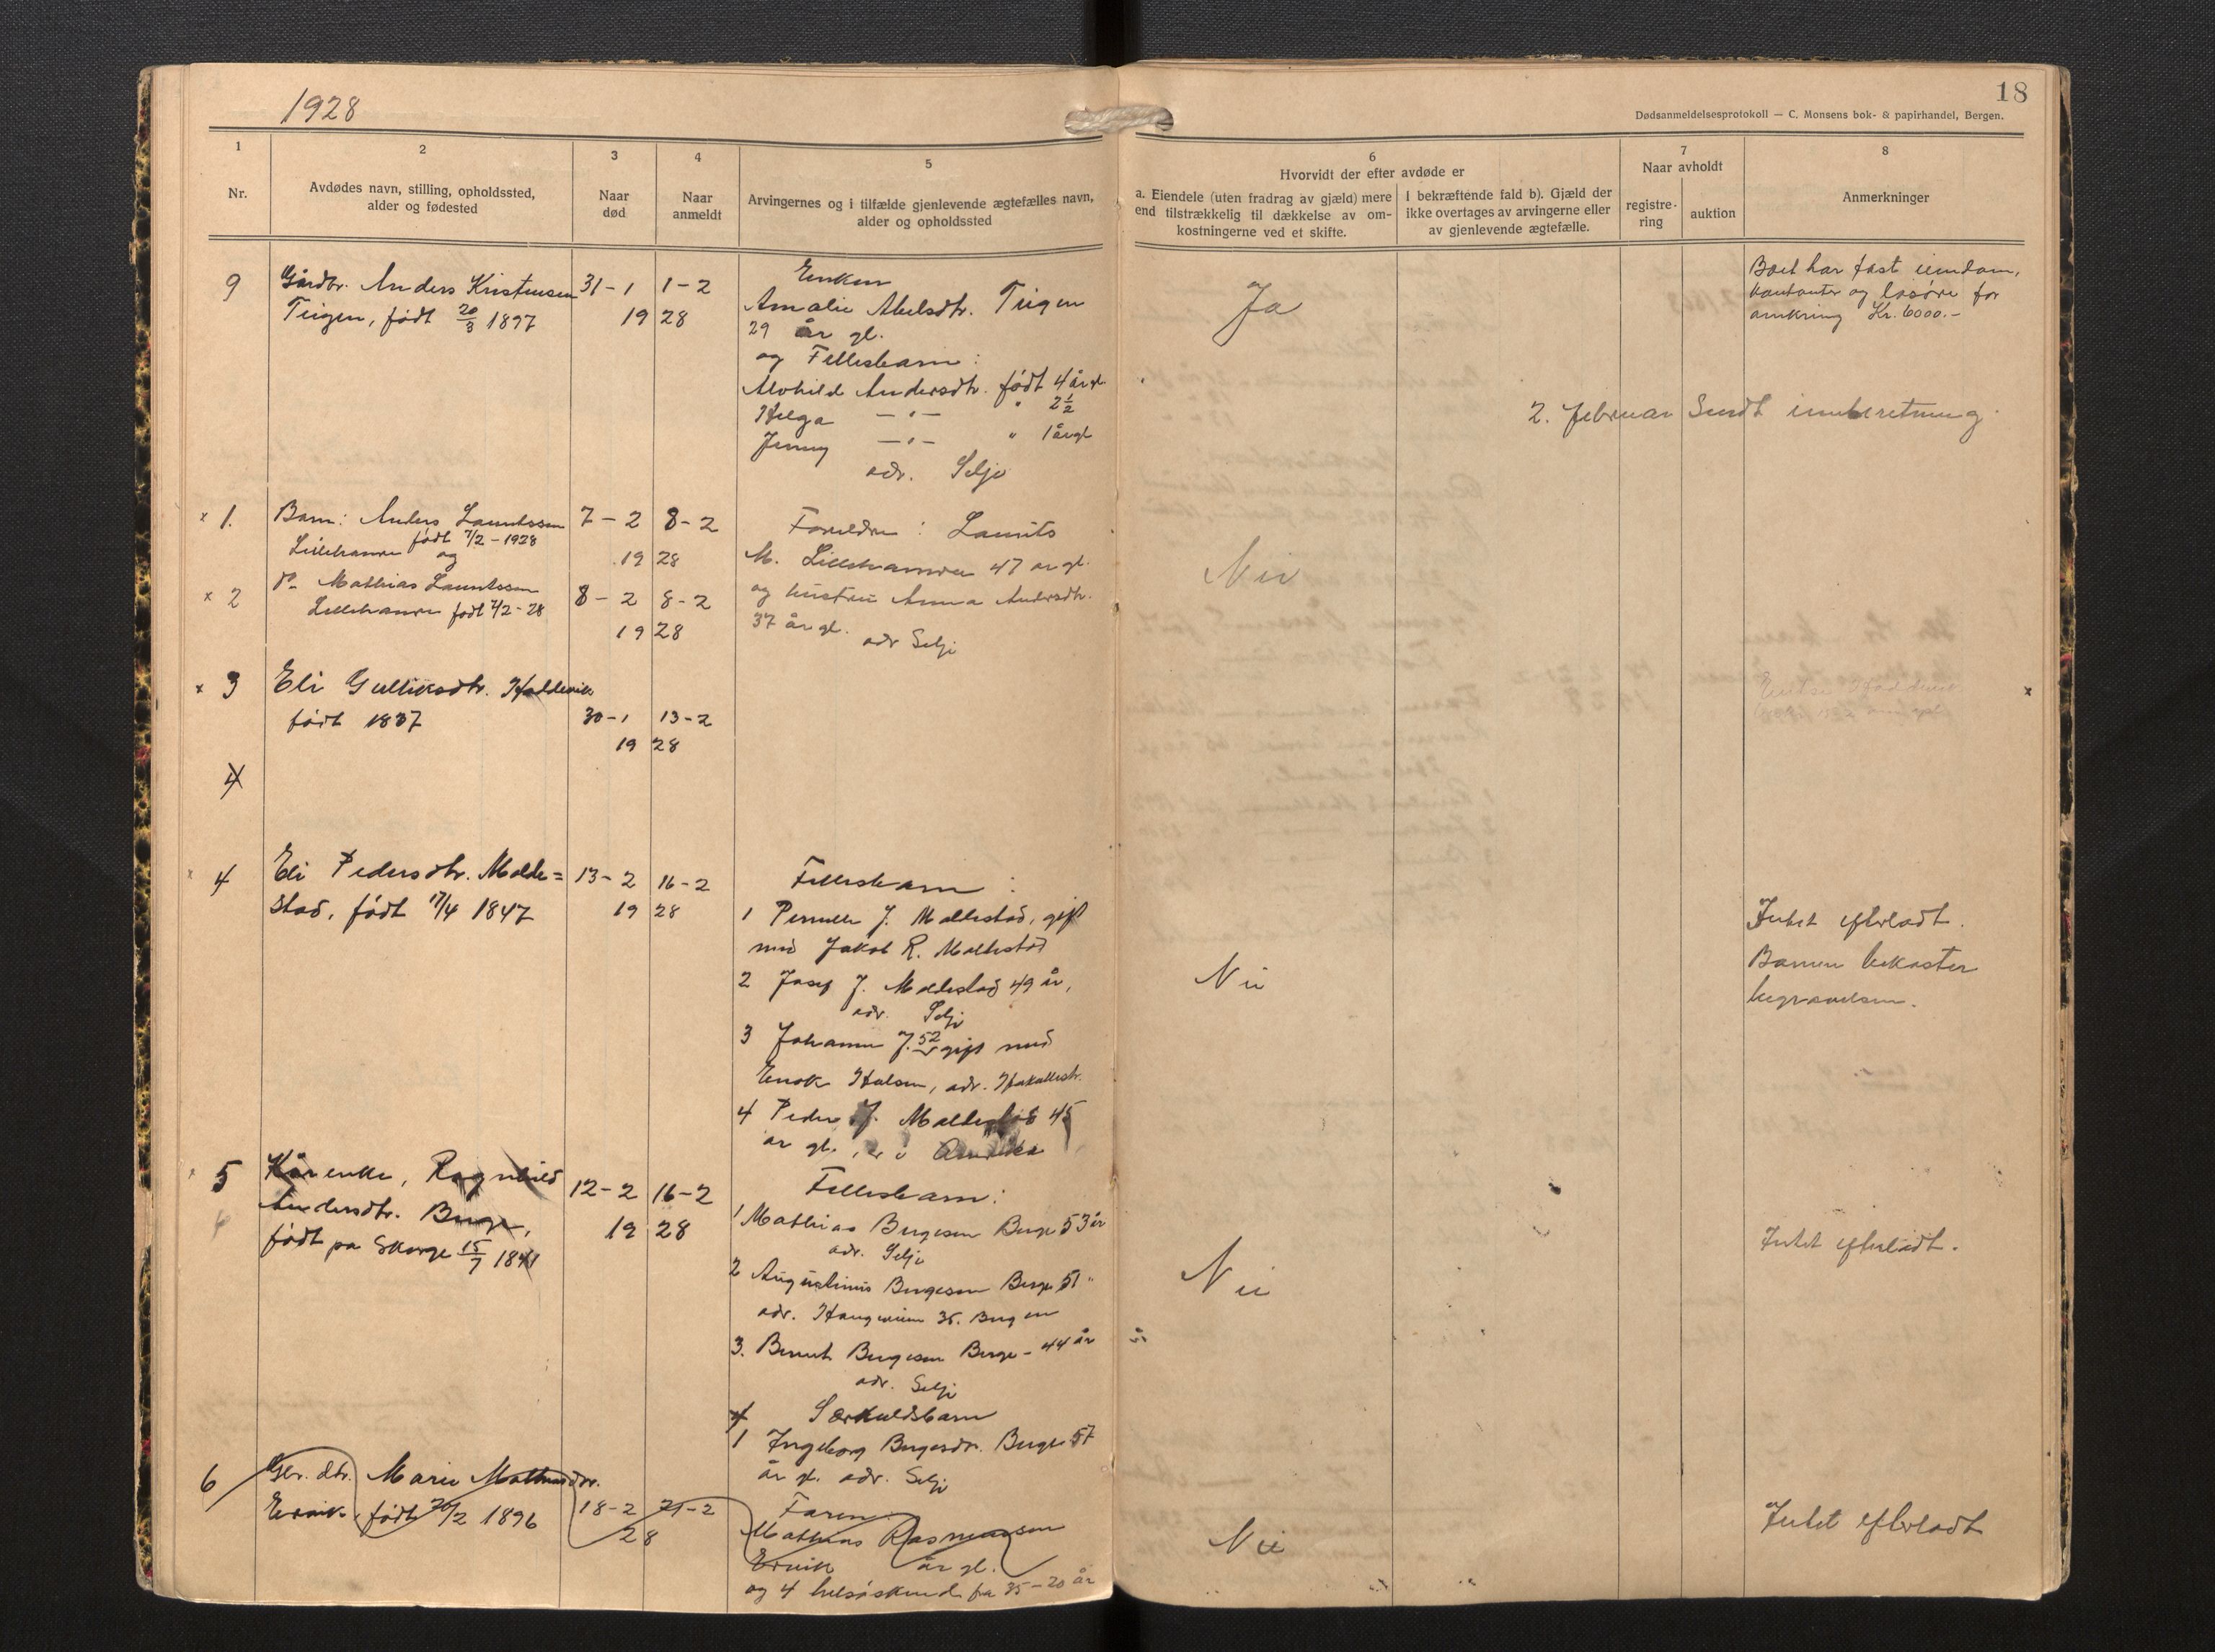 1928
18
Dødsanmeldelsesprotokoll — C. Monsens bok- & papirhandel, Bergen.
1
Nr.
2
Avdødes navn, stilling, opholdssted,
alder og fødested
3
Naar
død
4
Naar
anmeldt
5
Arvingernes og i tilfælde gjenlevende ægtefælles navn,
alder og opholdssted
6
Hvorvidt der efter avdøde er
a. Eiendele (uten fradrag av gjæld) mere
end tilstrækkelig til dækkelse av om-
kostningerne ved et skifte.
I bekræftende fald b). Gjæld der
ikke overtages av arvingerne eller
av gjenlevende ægtefælle.
7
Naar avholdt
registre-
ring
auktion
8
Anmerkninger
9
Gårdbr. Anders Kristensen
Teigen, født 20/3 1897
31-1 1-2
19 28
Enken
Amalie Abelsdtr. Teigen
29 år gl.
og Fellesbarn :
Alvhild Andersdtr. født 4 år gl.
Helga —"— " 2½
Jenny —"— " 1 år gl
adr. Selje
Ja
Boet har fast eiendom,
kontanter og løsøre for
omkring Kr. 6000.-
2. februar Sendt innberetning
x 1.
Barn: Anders Lauritssen
født 7/2-1928
Lillehamre og
7-2 8-2
19 28
Foreldre : Laurits
M. Lillehamre 47 år gl.
og hustru Anna Andersdtr.
37 år gl.
adr Selje
Nei
x 2
do Mathias Lauritssen
Lillehamre født 7/2-28
8-2 8-2
19 28
x 3
Eli Gulliksdtr. Hoddevik
født 1837
30-1 13-2
19 28
x
4
x 4
Eli Pedersdtr. Molde=
stad, født 17/4 1847
13-2 16-2
19 28
Fellesbarn :
1 Pernille J. Moldestad, gift
med Jakob R. Moldestad
2 Josef J. Moldestad 49 år,
adr. Selje
3 Johanne J. 52 gift med
Enok Halsen, adr.
4 Peder J. Moldestad 45
år gl., er i Amerika
Nei
Intet efterladt.
Barnen bekoster
begravelsen.
5
Kårenke, Ragnhild
Andersdtr. Berge,
født på Skorge 15/7 1841
12-2 16-2
19 28
Fellesbarn:
1 Mathias Bergesen Berge 53 år
adr. Selje
2 Augustinus Bergesen Berge 51 "
adr. Haugeveien 35. Bergen
3. Bernt Bergesen Berge - 44 år
adr. Selje
4 Særkuldsbarn
1 Ingeborg Bergesdtr. Berge 57
år gl. adr. Selje
Nei
Intet efterladt.
6
Gbr. dtr. Marie Mathiasdtr.
Ervik, født 20/2 1896
18-2 21-2
28
Faren
Mathias Rasmussen
Ervik år gl.
og 4 helsøskend fra 35-20 år
Nei
Intet efterladt